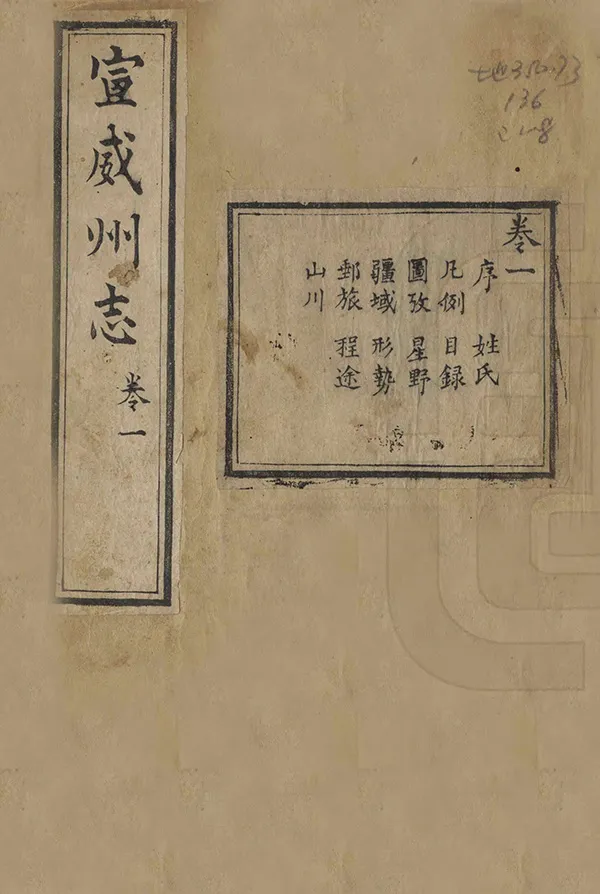 宣威州志 卷一
卷一
序 姓氏
凡例 目録
圖攷 星野
疆域 形勢
郵旅 程途
山川
地350.73
136